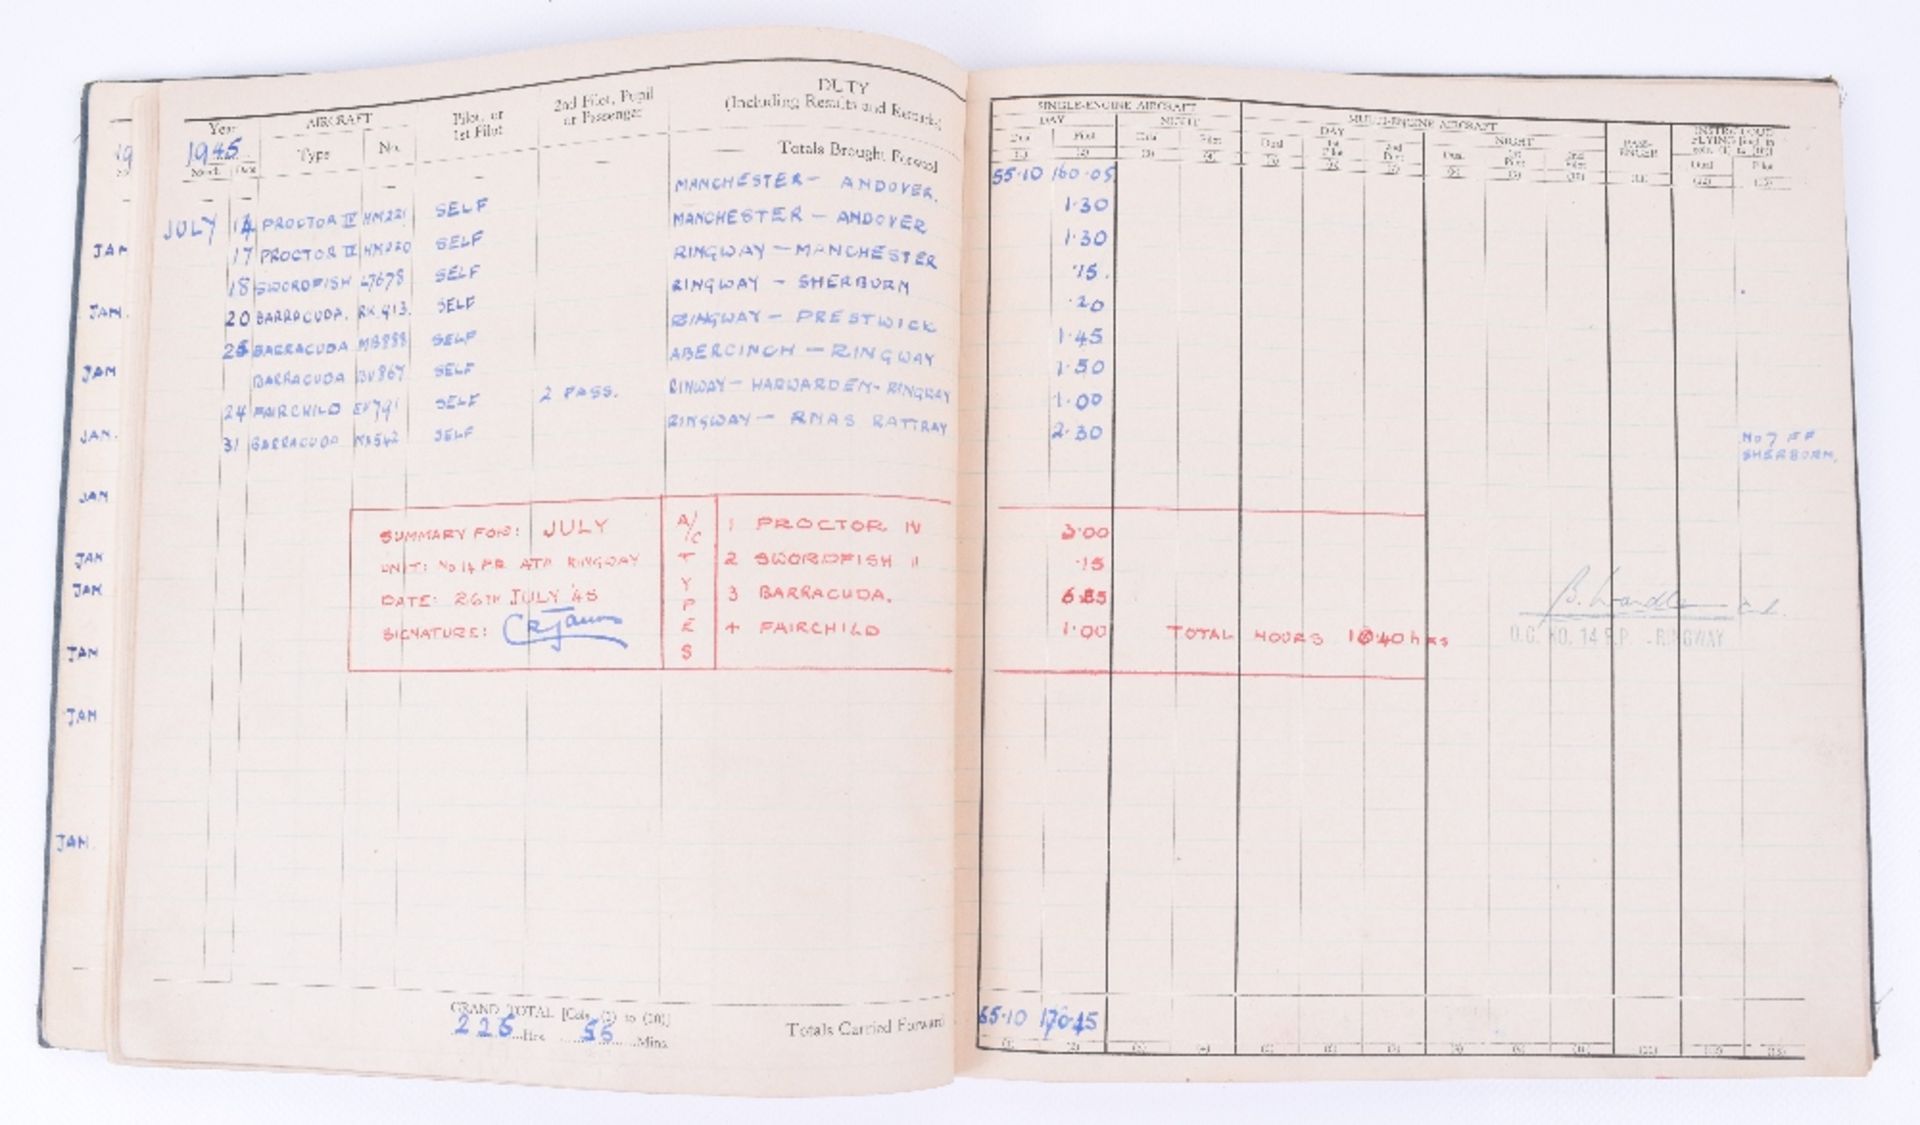 Year 1945
Month Date
AIRCRAFT
Type No.
Pilot, or 1st Pilot
2nd Pilot, Pupil or Passenger
DUTY
(Including Results and Remarks)
Totals Brought Forward
SINGLE-ENGINE AIRCRAFT
DAY NIGHT
Dual Pilot Dual Pilot
(1) (2) (3) (4)
MULTI-ENGINE AIRCRAFT
DAY NIGHT
Dual 1st Pilot 2nd Pilot Dual 1st Pilot 2nd Pilot
PASSENGER
Dual Pilot
55.10 160.05
MANCHESTER - ANDOVER.
JULY 14 PROCTOR IV HM221 SELF MANCHESTER - ANDOVER 1.30
17 PROCTOR IV HM220 SELF RINGWAY - MANCHESTER 1.30
18 SWORDFISH L7678 SELF RINGWAY - SHERBURN .15.
20 BARRACUDA. RK.913. SELF RINGWAY - PRESTWICK .20
25 BARRACUDA MB888 SELF ABERCINCH - RINGWAY 1.45
BARRACUDA BV867 SELF RINWAY - HARWARDEN - RINGWAY 1.50
24 FAIRCHILD EV791 SELF 2 PASS. RINGWAY - RNAS RATTRAY 1.00
31 BARRACUDA SELF 2.30
No 7 FF
SHERBORN.
SUMMARY FOR: JULY
UNIT: No 14 FP ATA RINGWAY
DATE: 26TH JULY '45
SIGNATURE:
A/C TYPES
1 PROCTOR IV 3.00
2 SWORDFISH II .15
3 BARRACUDA. 6.25
4 FAIRCHILD 1.00
TOTAL HOURS 10.40 hrs
O.C. NO. 14 F.P. - RINGWAY
GRAND TOTAL [Cols. (1) to (10)]
225 Hrs. 55 Mins.
Totals Carried Forward
55.10 170.45
JAN
JAN.
JAN
JAN.
JAN
JAN
JAN
JAN
JAN
JAN.